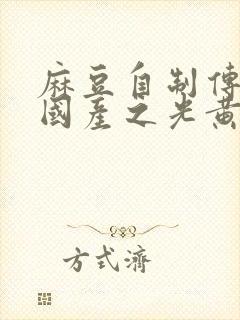 麻豆自制傳
國產之光黃
方式濟